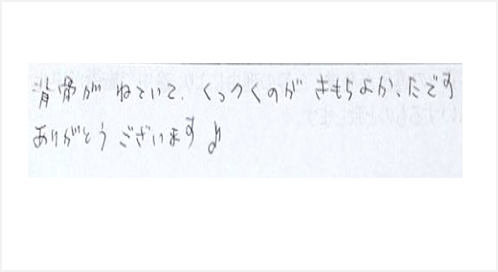 背骨がねていて、くっつくのがきもちよかったです
ありがとうございます♪